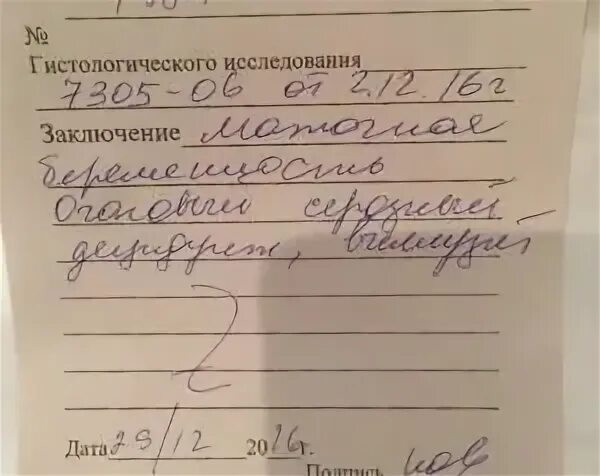 №
Гистологического исследования
7305-06 от 2.12.16г
Заключение Маточная
беременность
Очаговый серозный
децидуит, виллузит
Дата 29/12 2016г.
Подпись